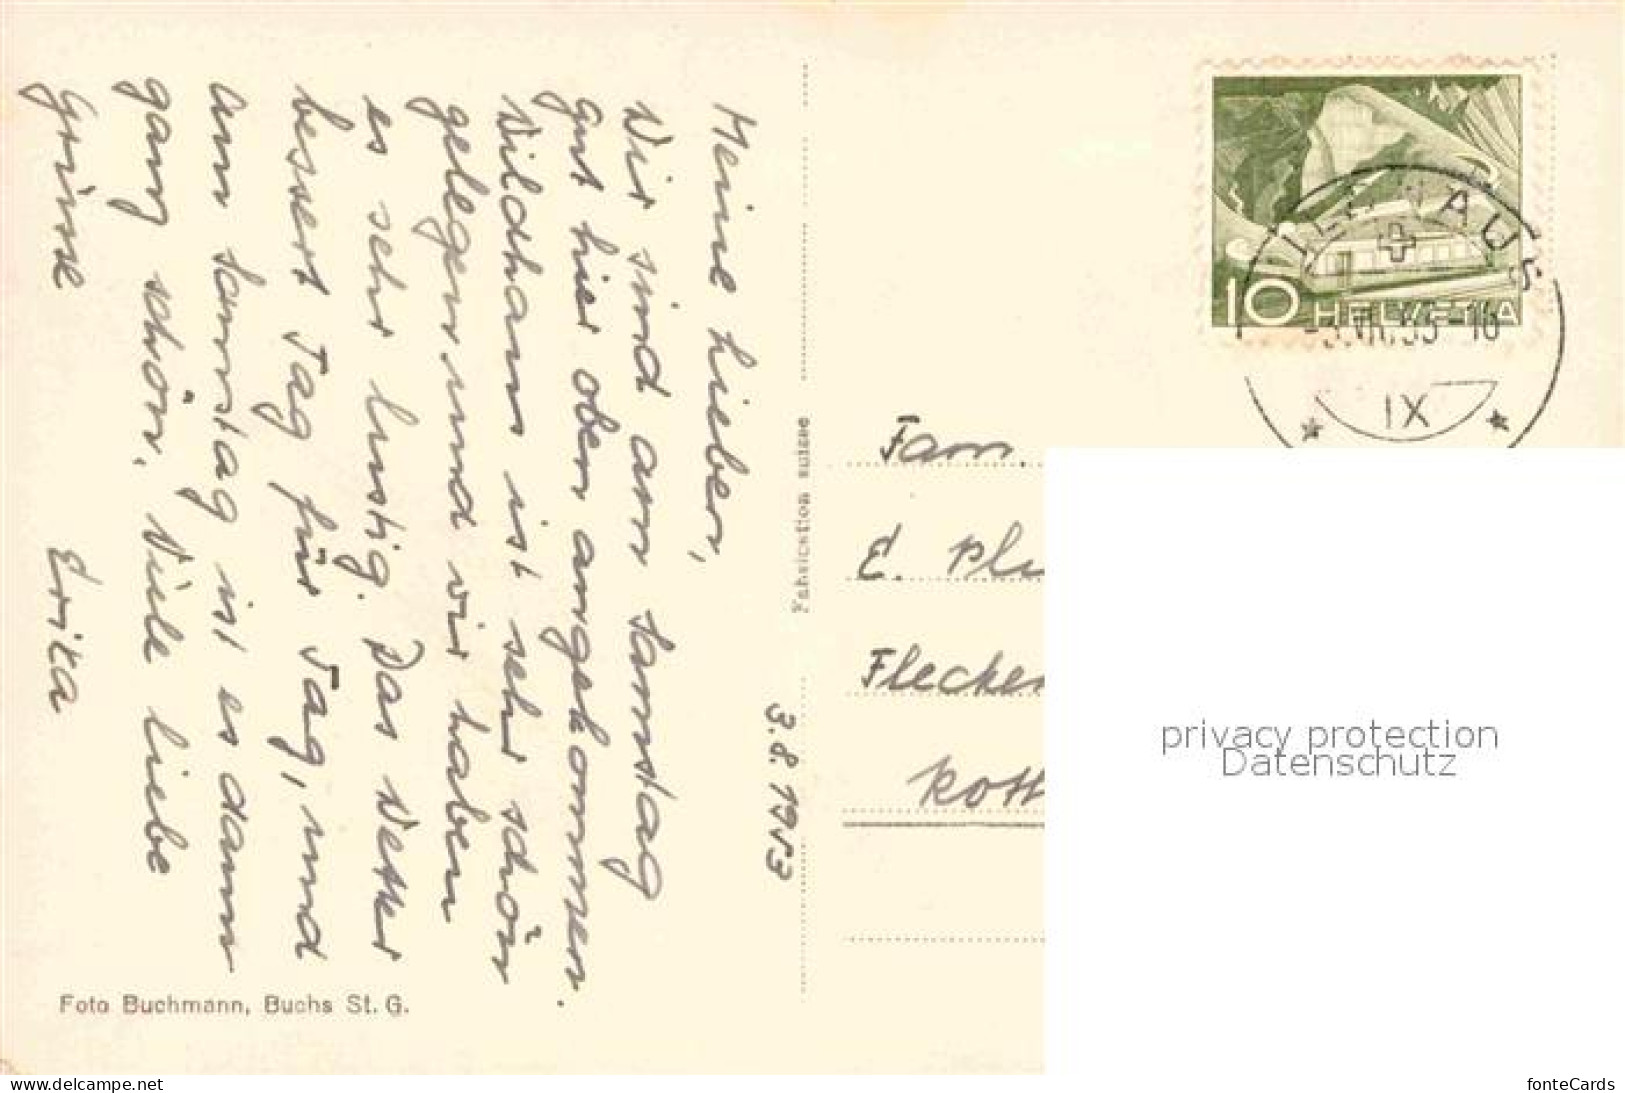 3.8.1953
Meine Lieben,
Wir sind am Samstag
gut hier oben angekommen.
Wildhaus ist sehr schön
gelegen und wir haben
es sehr lustig. Das Wetter
bessert Tag für Tag, und
am Samstag ist es dann
ganz schön. Viele liebe
Grüsse
Erika
Foto Buchmann, Buchs St. G.
Fabrication suisse
10 HELVETIA
IX
Fam.
E.
privacy protection
Datenschutz
www.delcampe.net
fonteCards